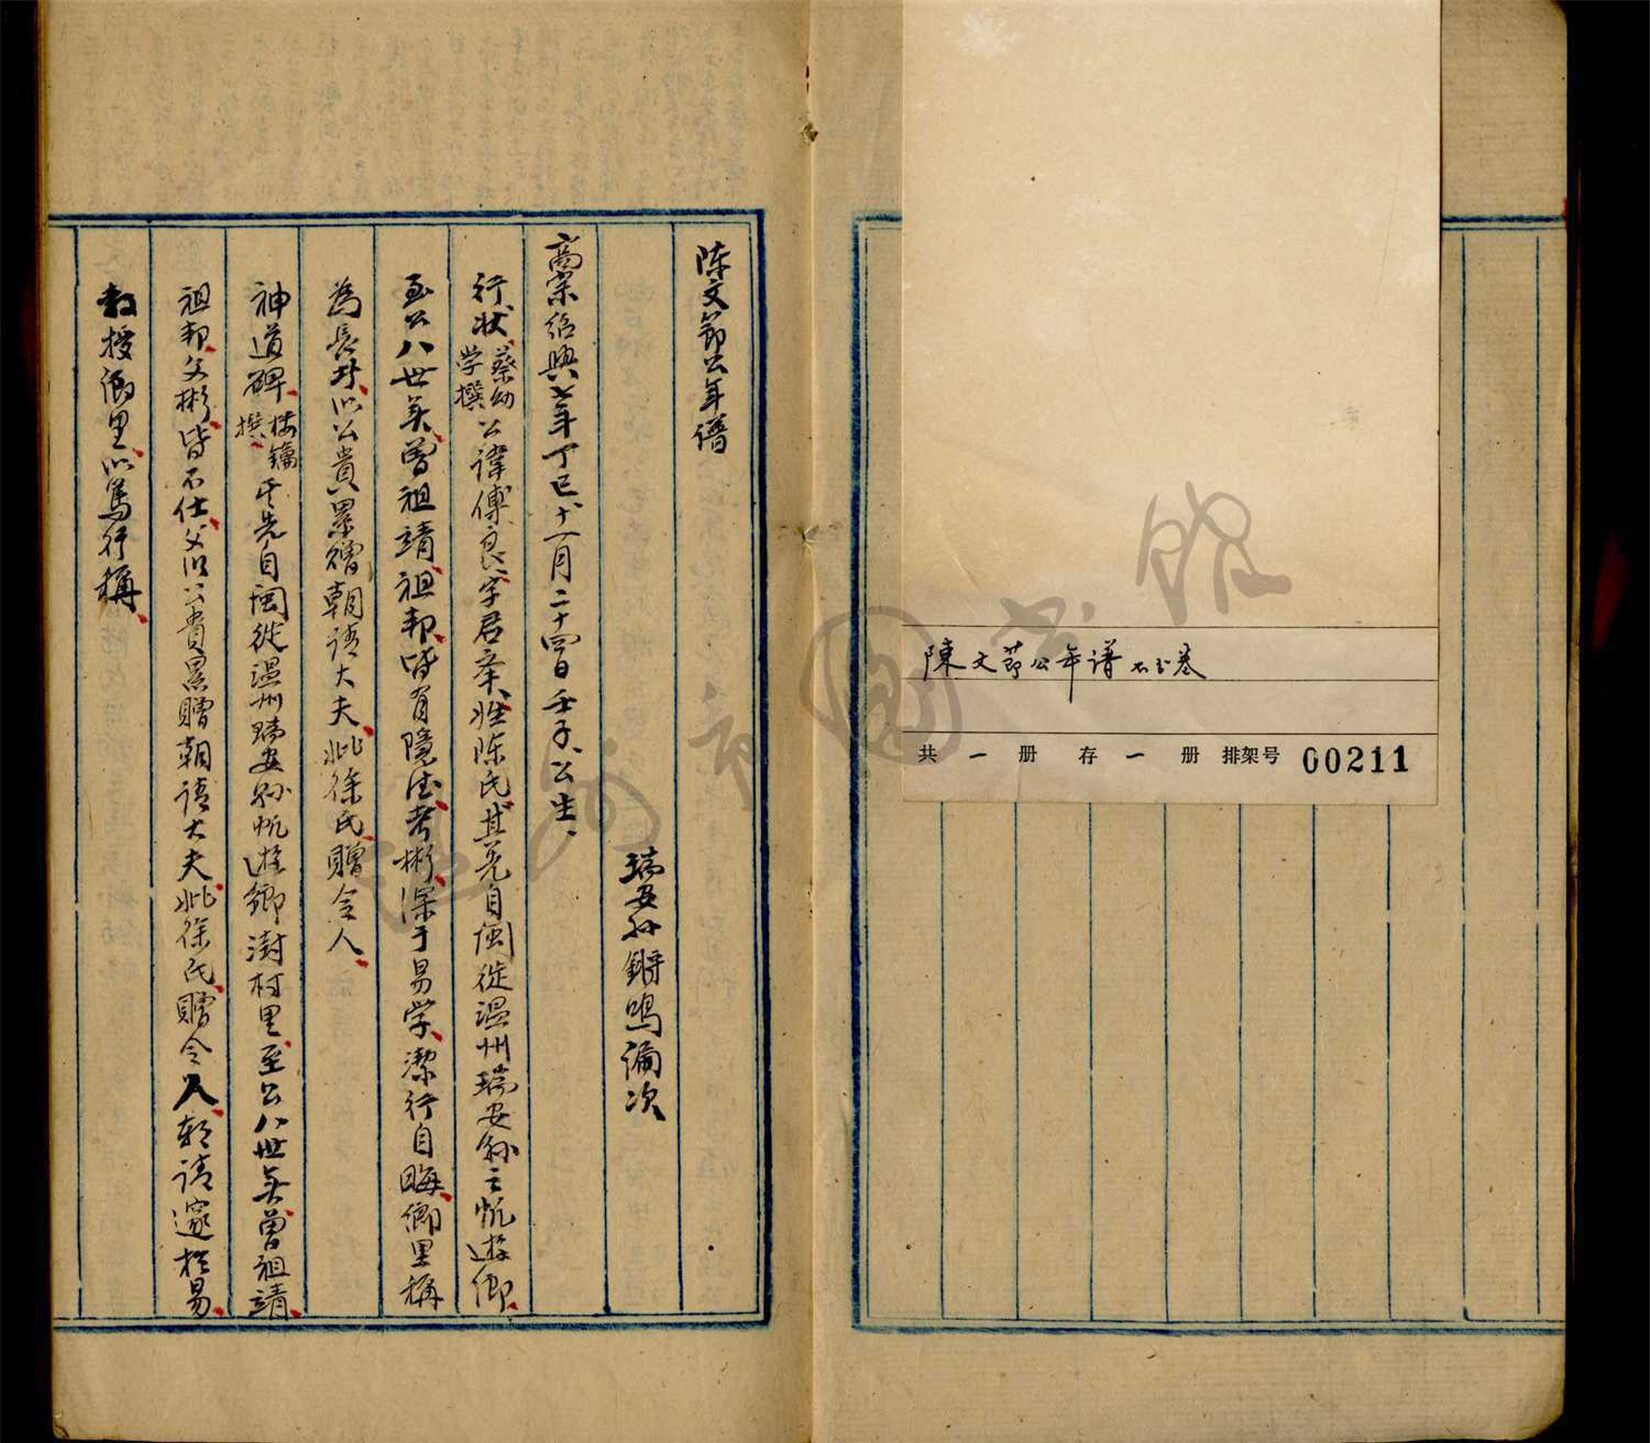 陳文節公年谱不分卷
共一册 存一册 排架号 00211
陈文節公年谱
瑞安孙鏘鳴编次
高宗绍興七年丁巳十一月二十四日壬子公生
行状蔡幼学撰公諱傅良字君举姓陈氏其先自闽徙温州瑞安縣之帆遊鄉
至公八世矣曾祖靖祖邦皆有隐德考彬深于易学潔行自晦鄉里稱
為長者以公貴累赠朝请大夫妣徐氏赠令人
神道碑楼鑰撰其先自闽徙温州瑞安縣帆遊鄉澍村里至公八世矣曾祖靖
祖邦父彬皆不仕父以公貴累贈朝请大夫妣徐氏贈令人朝请邃於易
教授鄉里以篤行稱
温州市圖书馆